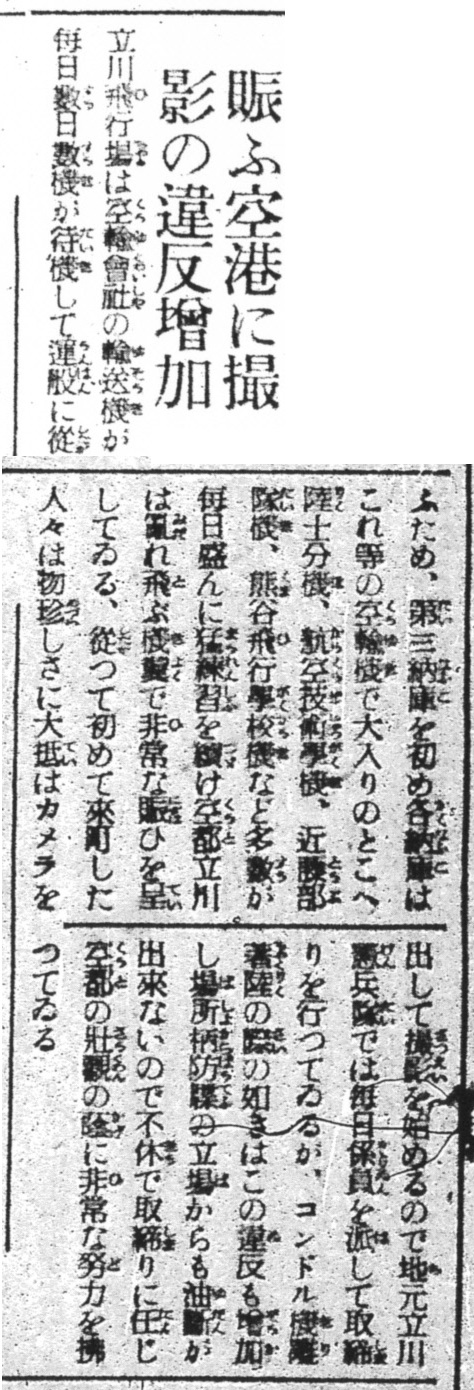 賑ふ空港に撮
影の違反増加
立川飛行場は空輸會社の輸送機が
毎日數日數機が待機して運般に從
ふため、第三納庫を初め各納庫は
これ等の空輸機で大入りのとこへ
陸士分機、航空技術學機、近隣部
隊機、熊谷飛行學校機など多數が
毎日盛んに猛練習を續け空都立川
は亂れ飛ぶ機翼で非常な賑ひを呈
してゐる、從つて初めて來町した
人々は物珍しさに大抵はカメラを
出して撮影を始めるので地元立川
憲兵隊では毎日係員を派して取締
りを行つてゐるが、コンドル機離
著陸の際の如きはこの違反も增加
し場所柄防諜の立場からも油斷が
出來ないので不休で取締りに任じ
空都の壯觀の蔭に非常な努力を拂
つてゐる